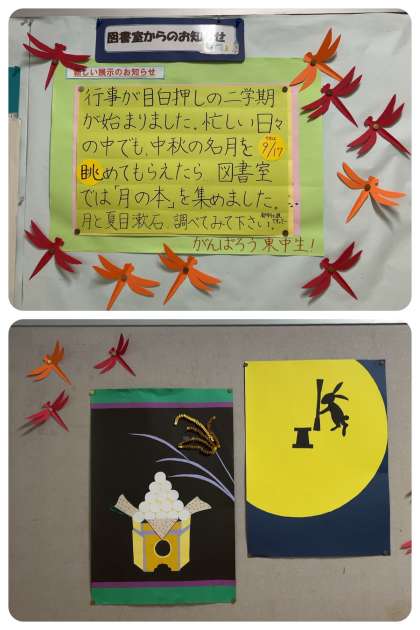 図書室からのお知らせ
新しい展示のお知らせ
行事が目白押しの二学期
が始まりました。忙しい日々
の中でも、中秋の名月を 9/17
眺めてもらえたら 図書室
では「月の本」を集めました。
月と夏目漱石、調べてみて下さい。
がんばろう東中生!